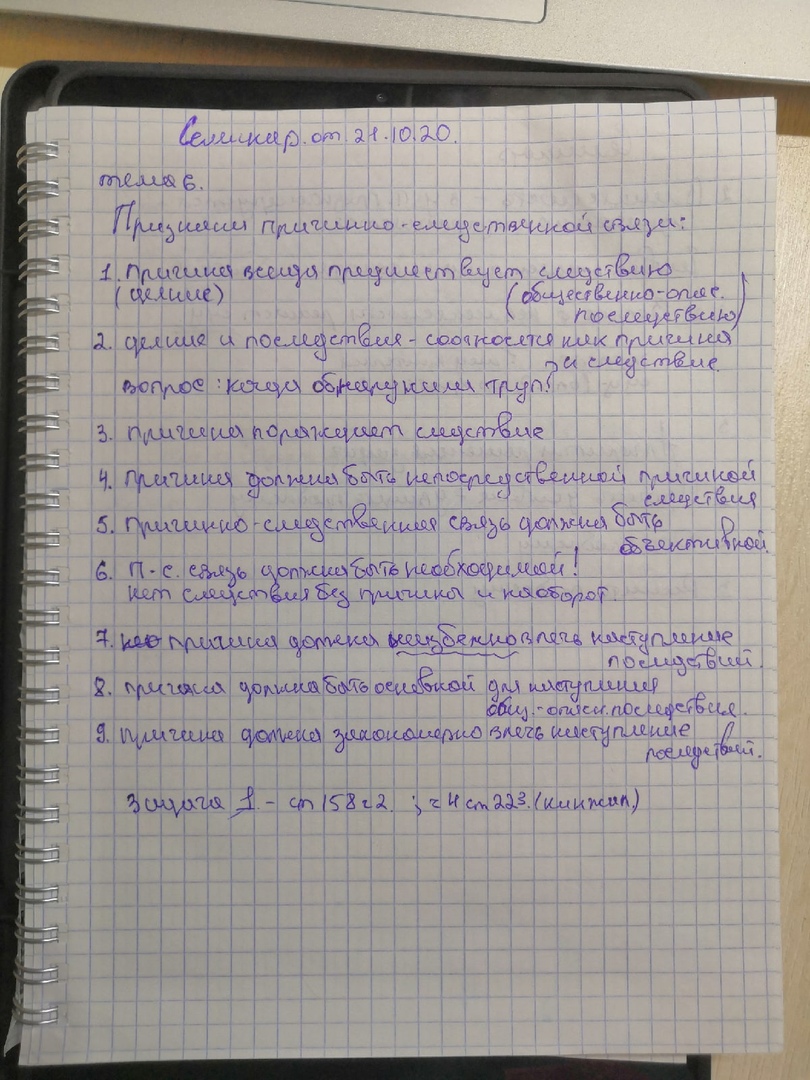 Семинар от 21.10.20.
тема 6.
Признаки причинно-следственной связи:
1. причина всегда предшествует следствию
(деяние) (общественно-опас.
последствию)
2. деяние и последствия - соотносятся как причина
и следствие.
вопрос: когда обнаружили труп?
3. причина пораждает следствие
4. причина должна быть непосредственной причиной
следствия
5. причинно-следственная связь должна быть
объективной.
6. П.-с. связь должна быть необходимой!
нет следствия без причины и наоборот.
7. причина должна неизбежно влечь наступление
последствий.
8. причина должна быть основной для наступления
общ.-опасн. последствия.
9. причина должна закономерно влечь наступление
последствий.
Задача 1 - ст 158 ч 2. ; ч 4 ст 223. (кинжал)